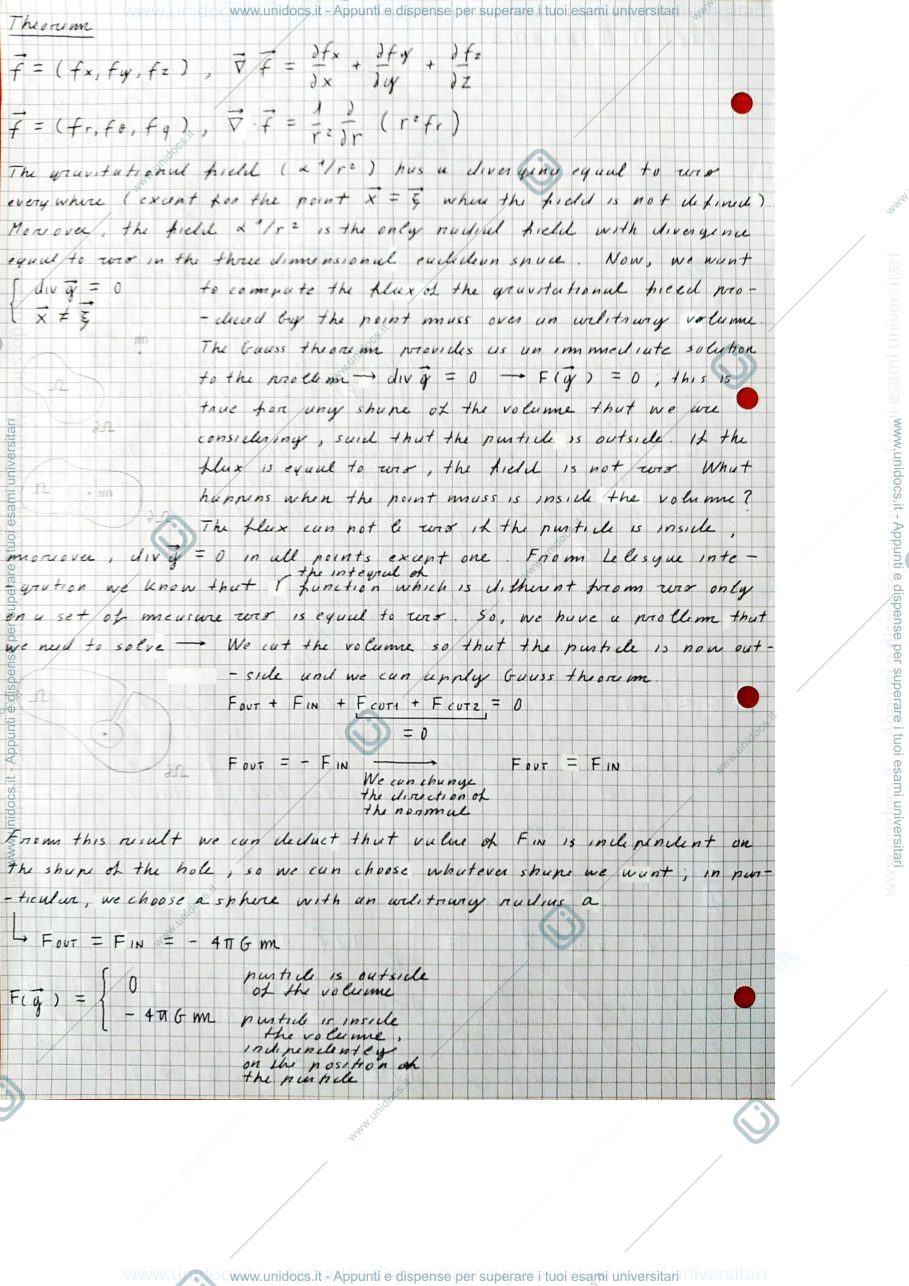 www.unidocs.it - Appunti e dispense per superare i tuoi esami universitari
Theorem
f⃗ = (fx, fy, fz) , ∇⃗ · f⃗ = ∂fx/∂x + ∂fy/∂y + ∂fz/∂z
f⃗ = (fr, fθ, fφ) , ∇⃗ · f⃗ = 1/r² ∂/∂r (r² fr)
The gravitational field (∝ 1/r²) has a diverging equal to zero
everywhere (except for the point x⃗ = ξ⃗ where the field is not defined)
Moreover, the field ∝ 1/r² is the only radial field with divergence
equal to zero in the three dimensional euclidean space. Now, we want
{ div g⃗ = 0
x⃗ ≠ ξ⃗
to compute the flux of the gravitational field pro-
-duced by the point mass over an arbitrary volume.
The Gauss theorem provides us an immediate solution
to the problem → div g⃗ = 0 → F(g⃗) = 0 , this is
true for any shape of the volume that we are
considering, said that the particle is outside. If the
flux is equal to zero, the field is not zero What
happens when the point mass is inside the volume?
The flux can not be zero if the particle is inside,
moreover, div g⃗ = 0 in all points except one. From Lebesgue inte-
gration we know that the integral of function which is different from zero only
on a set of measure zero is equal to zero. So, we have a problem that
we need to solve → We cut the volume so that the particle is now out-
-side and we can apply Gauss theorem.
F OUT + F IN + F CUT1 + F CUT2 = 0
= 0
F OUT = - F IN → F OUT = F IN
We can change
the direction of
the normal
From this result we can deduct that value of F IN is independent on
the shape of the hole, so we can choose whatever shape we want; in par-
-ticular, we choose a sphere with an arbitrary radius a
↳ F OUT = F IN = - 4πGm
F(g⃗) = { 0 particle is outside
of the volume
- 4πGm particle is inside
the volume,
independently
on the position of
the particle
www.unidocs.it - Appunti e dispense per superare i tuoi esami universitari